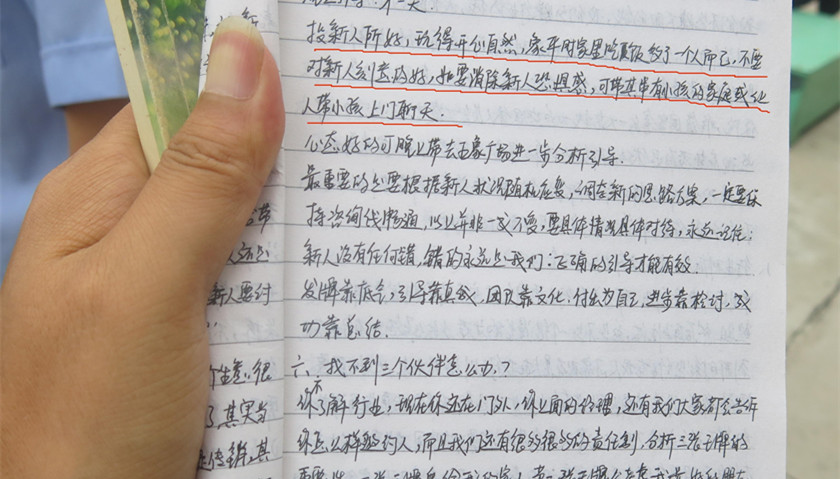 投新人所好，玩得开心自然，像平时家里吃顿饭多了一个人而已，不要
对新人刻意的好，也要消除新人恐惧感，可带其串有小孩的家庭或他
人带小孩上门聊天.
心态好的可晚上带去玉象广场进一步分析引导.
最重要的是要根据新人状况随机应变，调查新的思路方案，一定要保
持咨询线畅通，以上并非一成不变，要具体情况具体对待，永远记住：
新人没有任何错，错的永远是我们；正确的引导才能有效.
发牌靠底会，引导靠真诚，团队靠文化，付出为自己，进步靠检讨，成
功靠总结.
六、找不到三个伙伴怎么办？
你不了解行业，现在你还在门外，你上面的经理，还有我们大家都会告诉
你怎么样邀约人，而且我们还有很多很多的责任制，分析三张王牌的
新人要讨
个生意，很
了其实当
是传销，其